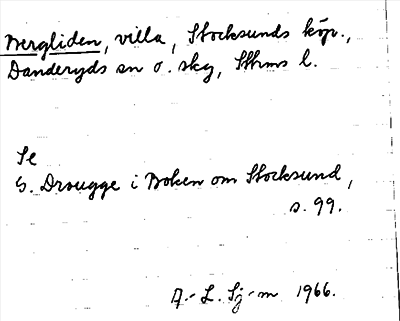 Bergliden, villa, Stocksunds köp.,
Danderyds sn o. skg, Sthms l.
Se
G. Drougge i Boken om Stocksund,
s. 99.
A.-L. Sj-m 1966.